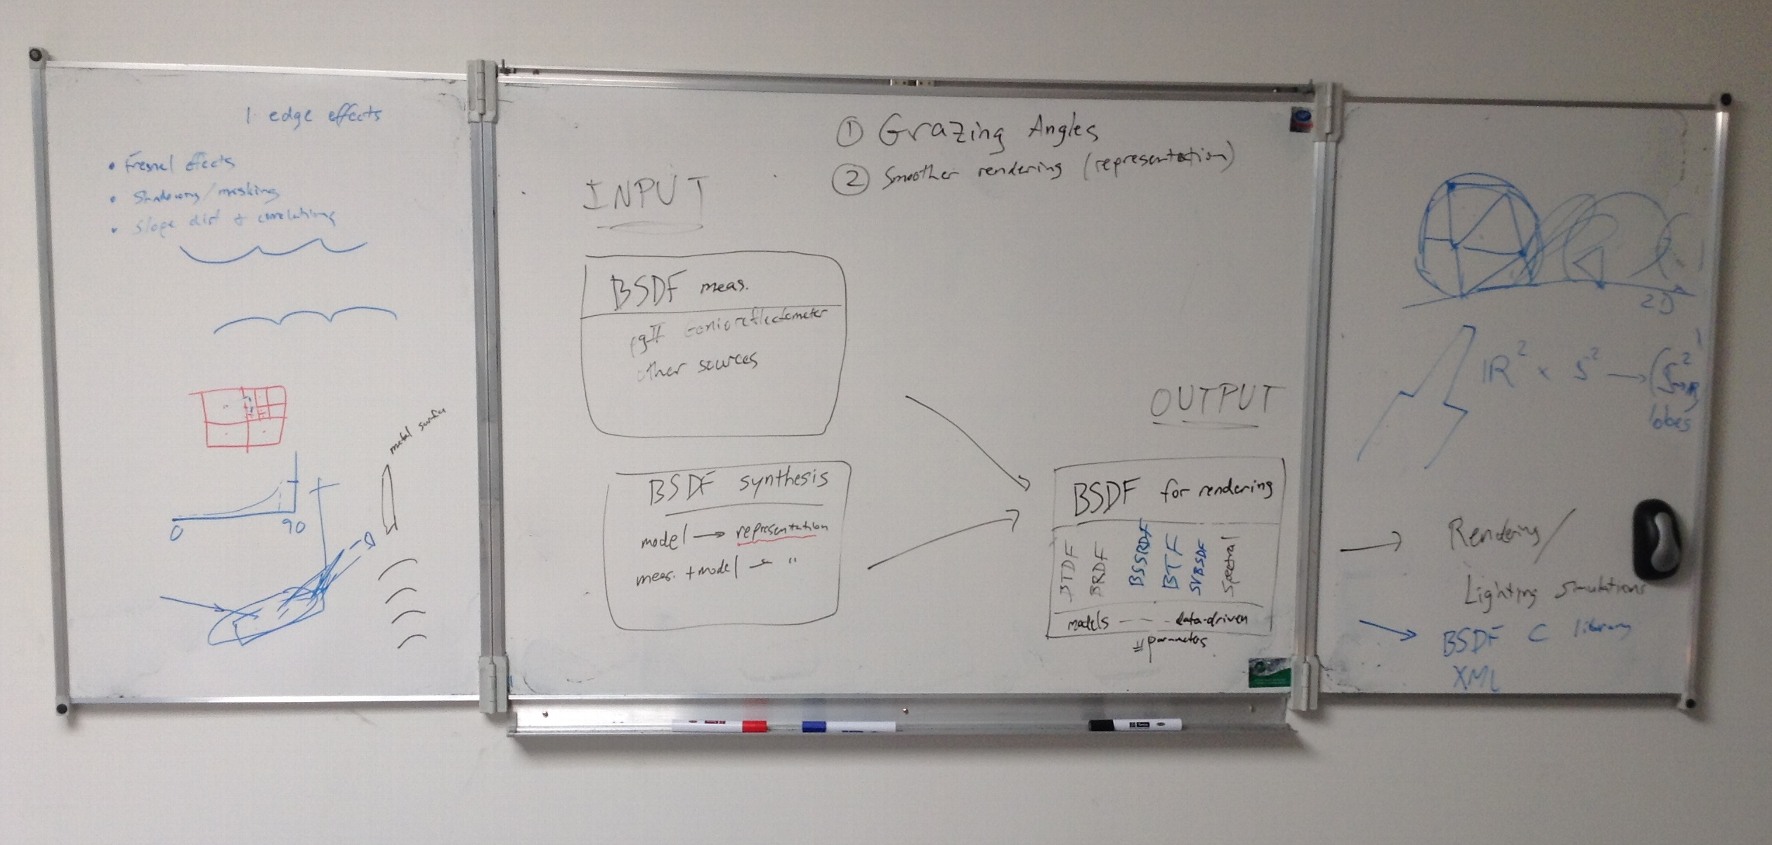 1 edge effects
• Fresnel effects
• Shadowing/masking
• Slope dist + correlations
metal surface
0 90
① Grazing Angles
② Smoother rendering (representation)
INPUT
BSDF meas.
pgII Gonioreflectometer
other sources
BSDF synthesis
model → representation
meas. + model → "
OUTPUT
BSDF for rendering
BTDF
BRDF
BSSRDF
BTF
SVBSDF
Spectral
models - - - data-driven
# parameters
2D
IR² × S² → (S²
lobes
Rendering/
Lighting simulations
BSDF C library
XML